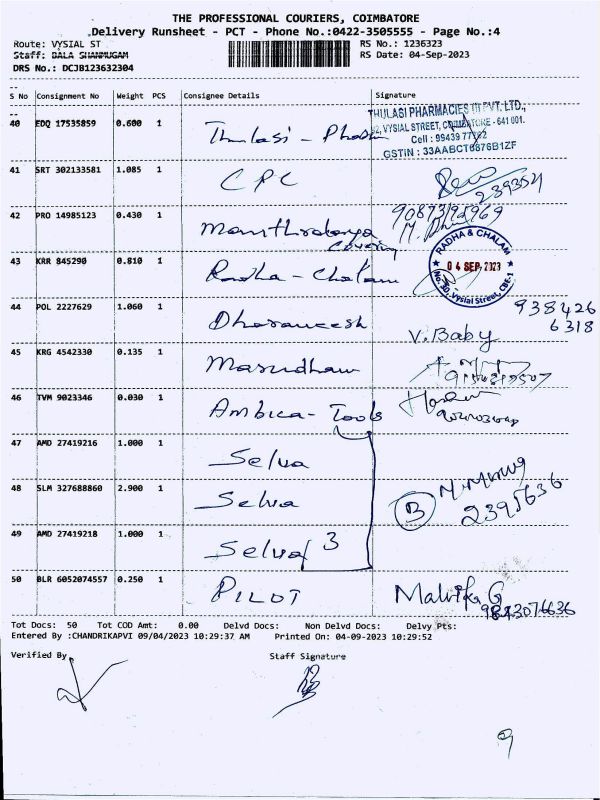 THE PROFESSIONAL COURIERS, COIMBATORE
Delivery Runsheet - PCT - Phone No.:0422-3505555 - Page No.:4
Route: VYSIAL ST RS No.: 1236323
Staff: BALA SHANMUGAM RS Date: 04-Sep-2023
DRS No.: DCJB123632304
S No Consignment No Weight PCS Consignee Details Signature
40 EDQ 17535859 0.600 1 Thulasi - Pharm
THULASI PHARMACIES (I) PVT. LTD.,
VYSIAL STREET, COIMBATORE - 641 001.
Cell : 99439
GSTIN : 33AABCT6876B1ZF
41 SRT 302133581 1.085 1 CPC 2393521
42 PRO 14985123 0.430 1 Manthralaya
Covering
43 KRR 845290 0.810 1 Radha - Chalam
RADHA & CHALAM
04 SEP 2023
No.30, Vysial Street, CBE-1
44 POL 2227629 1.060 1 Dharaneesh V. Baby 938426
6318
45 KRG 4542330 0.135 1
46 TVM 9023346 0.030 1 Ambica - Tools
47 AMD 27419216 1.000 1 Selva
48 SLM 327688860 2.900 1 Selva 3 2395636
49 AMD 27419218 1.000 1 Selva 3
50 BLR 6052074557 0.250 1 PILOT Malvika G
9843076636
Tot Docs: 50 Tot COD Amt: 0.00 Delvd Docs: Non Delvd Docs: Delvy Pts:
Entered By :CHANDRIKAPVI 09/04/2023 10:29:37 AM Printed On: 04-09-2023 10:29:52
Verified By Staff Signature